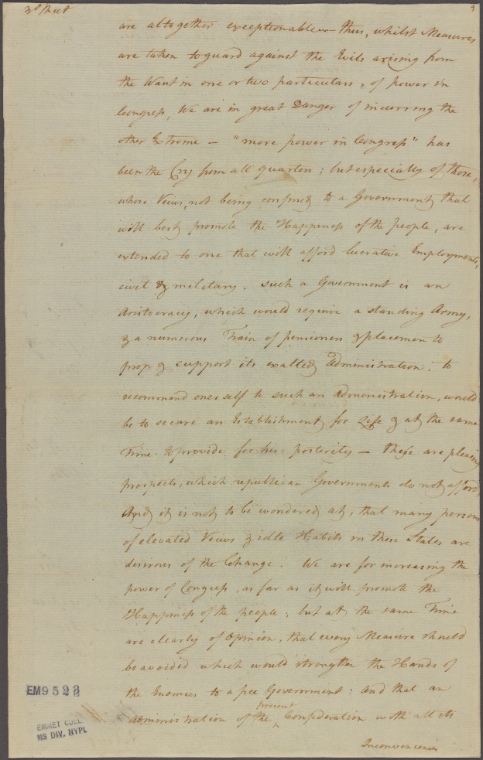 3d Sheet
3
are altogether exceptionable — thus, whilst Measures
are taken to guard against the Evils arising from
the Want in one or two particulars, of power in
Congress, We are in great Danger of incurring the
other Extreme — "more power in Congress" has
been the Cry from all quarters; but especially of those,
whose Views, not being confined to a Government that
will best promote the Happiness of the people, are
extended to one that will afford lucrative Employments,
civil & military. such a Government is an
Aristocracy, which would require a standing Army,
& a numerous Train of pensioners & placemen to
prop & support its exalted Administration. to
recommend ones self to such an Administration, would
be to secure an Establishment for Life & at the same
Time to provide for his posterity — These are pleasing
prospects, which republican Governments do not afford,
And it is not to be wondered at, that many persons
of elevated Views & idle Habits in these States are
desirous of the Change. We are for increasing the
power of Congress, as far as it will promote the
Happiness of the people; but at the same Time
are clearly of Opinion, that every Measure should
be avoided which would strengthen the Hands of
the Enemies to a free Government: And that an
present
administration of the Confederation with all its
Inconveniences
EM9528
EMMET COLL.
MS DIV. NYPL